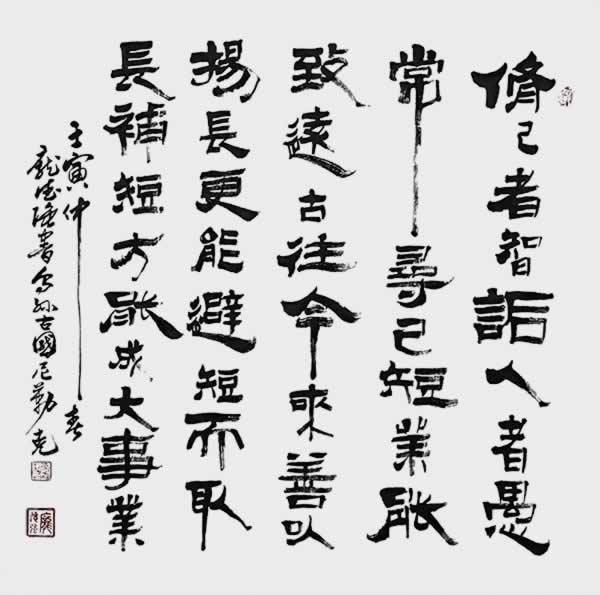 脩己者智詬人者愚
常尋己短業能
致遠古往今來善以
揚長更能避短而取
長補短方能成大事業
壬寅仲春
書乌孙古國尼勒克